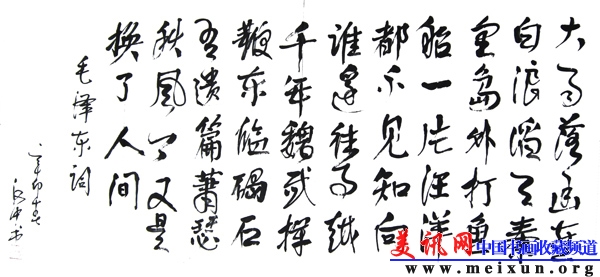 大雨落幽燕
白浪滔天秦
皇島外打魚
船一片汪洋
都不见知向
谁邊往事越
千年魏武揮
鞭东临碣石
有遗篇蕭瑟
秋风今又是
換了人间
毛泽东词
辛卯
美讯网 中国书画收藏频道
www.meixun.org